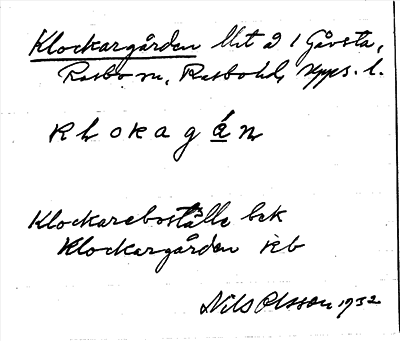 Klockargården Litt a 1 Gåvsta,
Rasbo sn, Rasbo hd, Upps. l.
klokagán
Klockareboställe bek
Klockargården kb
Nils Olsson 1932